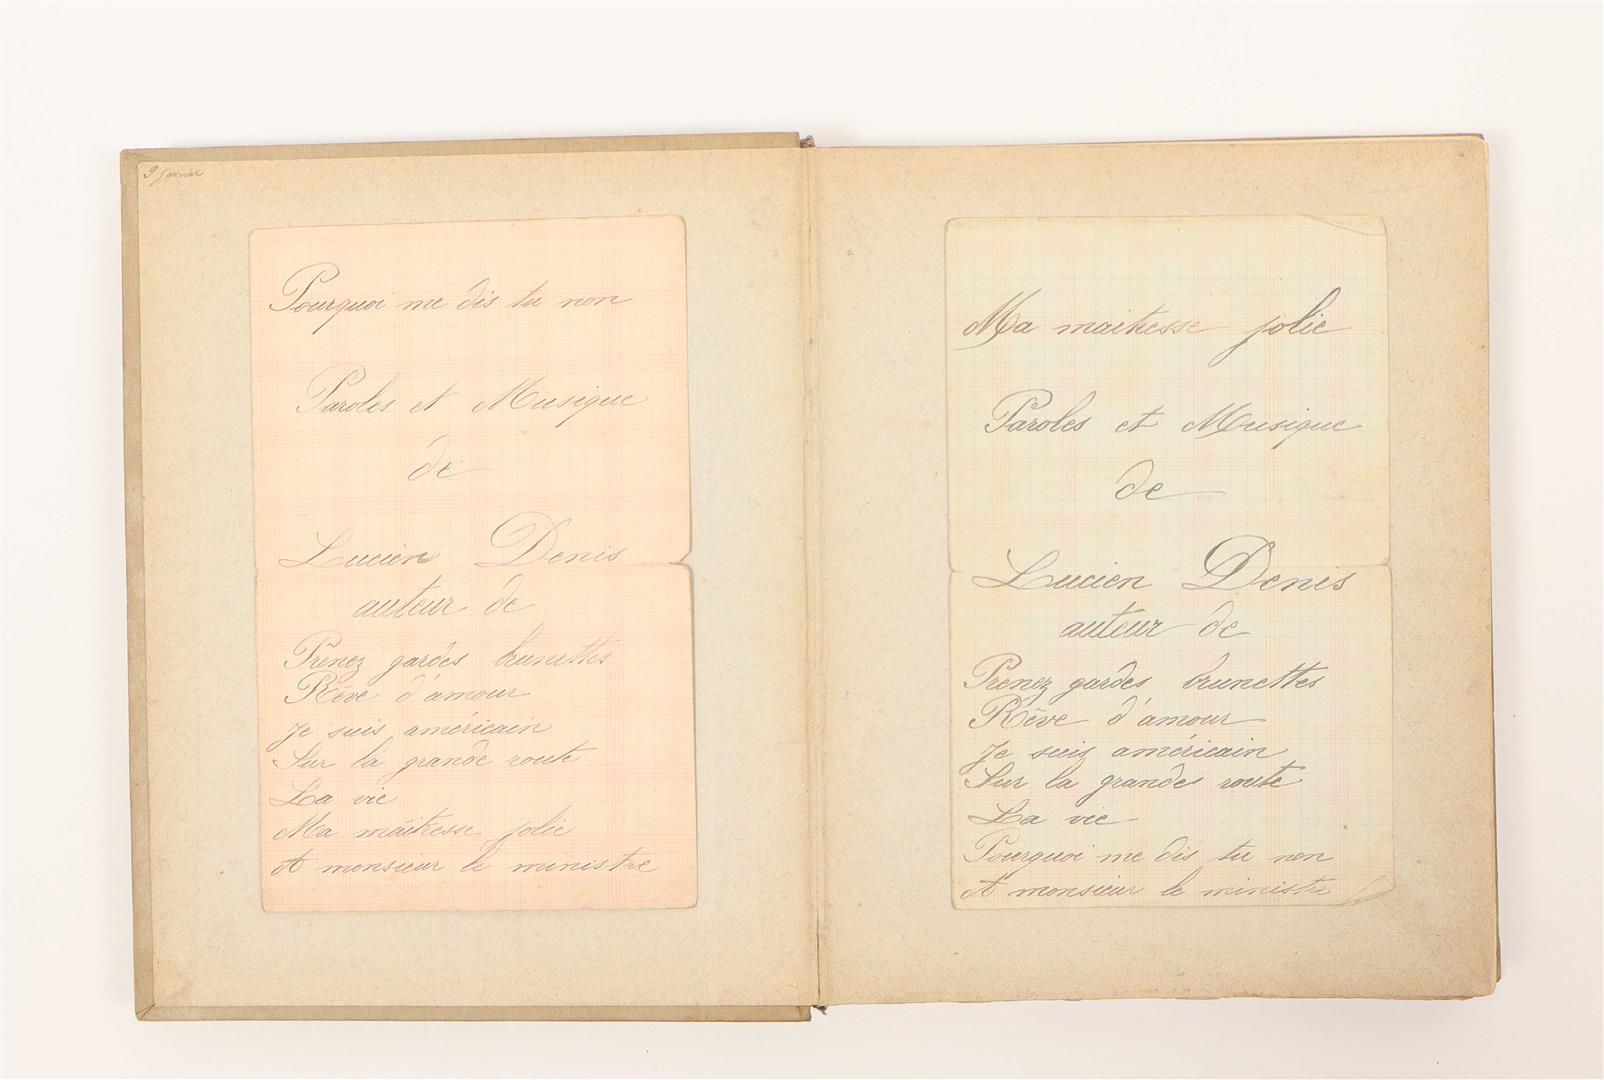 9 Janvier
Pourquoi me dis tu non
Paroles et Musique
de
Lucien Denis
auteur de
Prenez gardes brunettes
Rêve d'amour
Je suis américain
Sur la grande route
La vie
Ma maîtresse jolie
A monsieur le ministre
Ma maitresse jolie
Paroles et Musique
de
Lucien Denis
auteur de
Prenez gardes brunettes
Rêve d'amour
Je suis américain
Sur la grandes route
La vie
Pourquoi me dis tu non
A monsieur le ministre